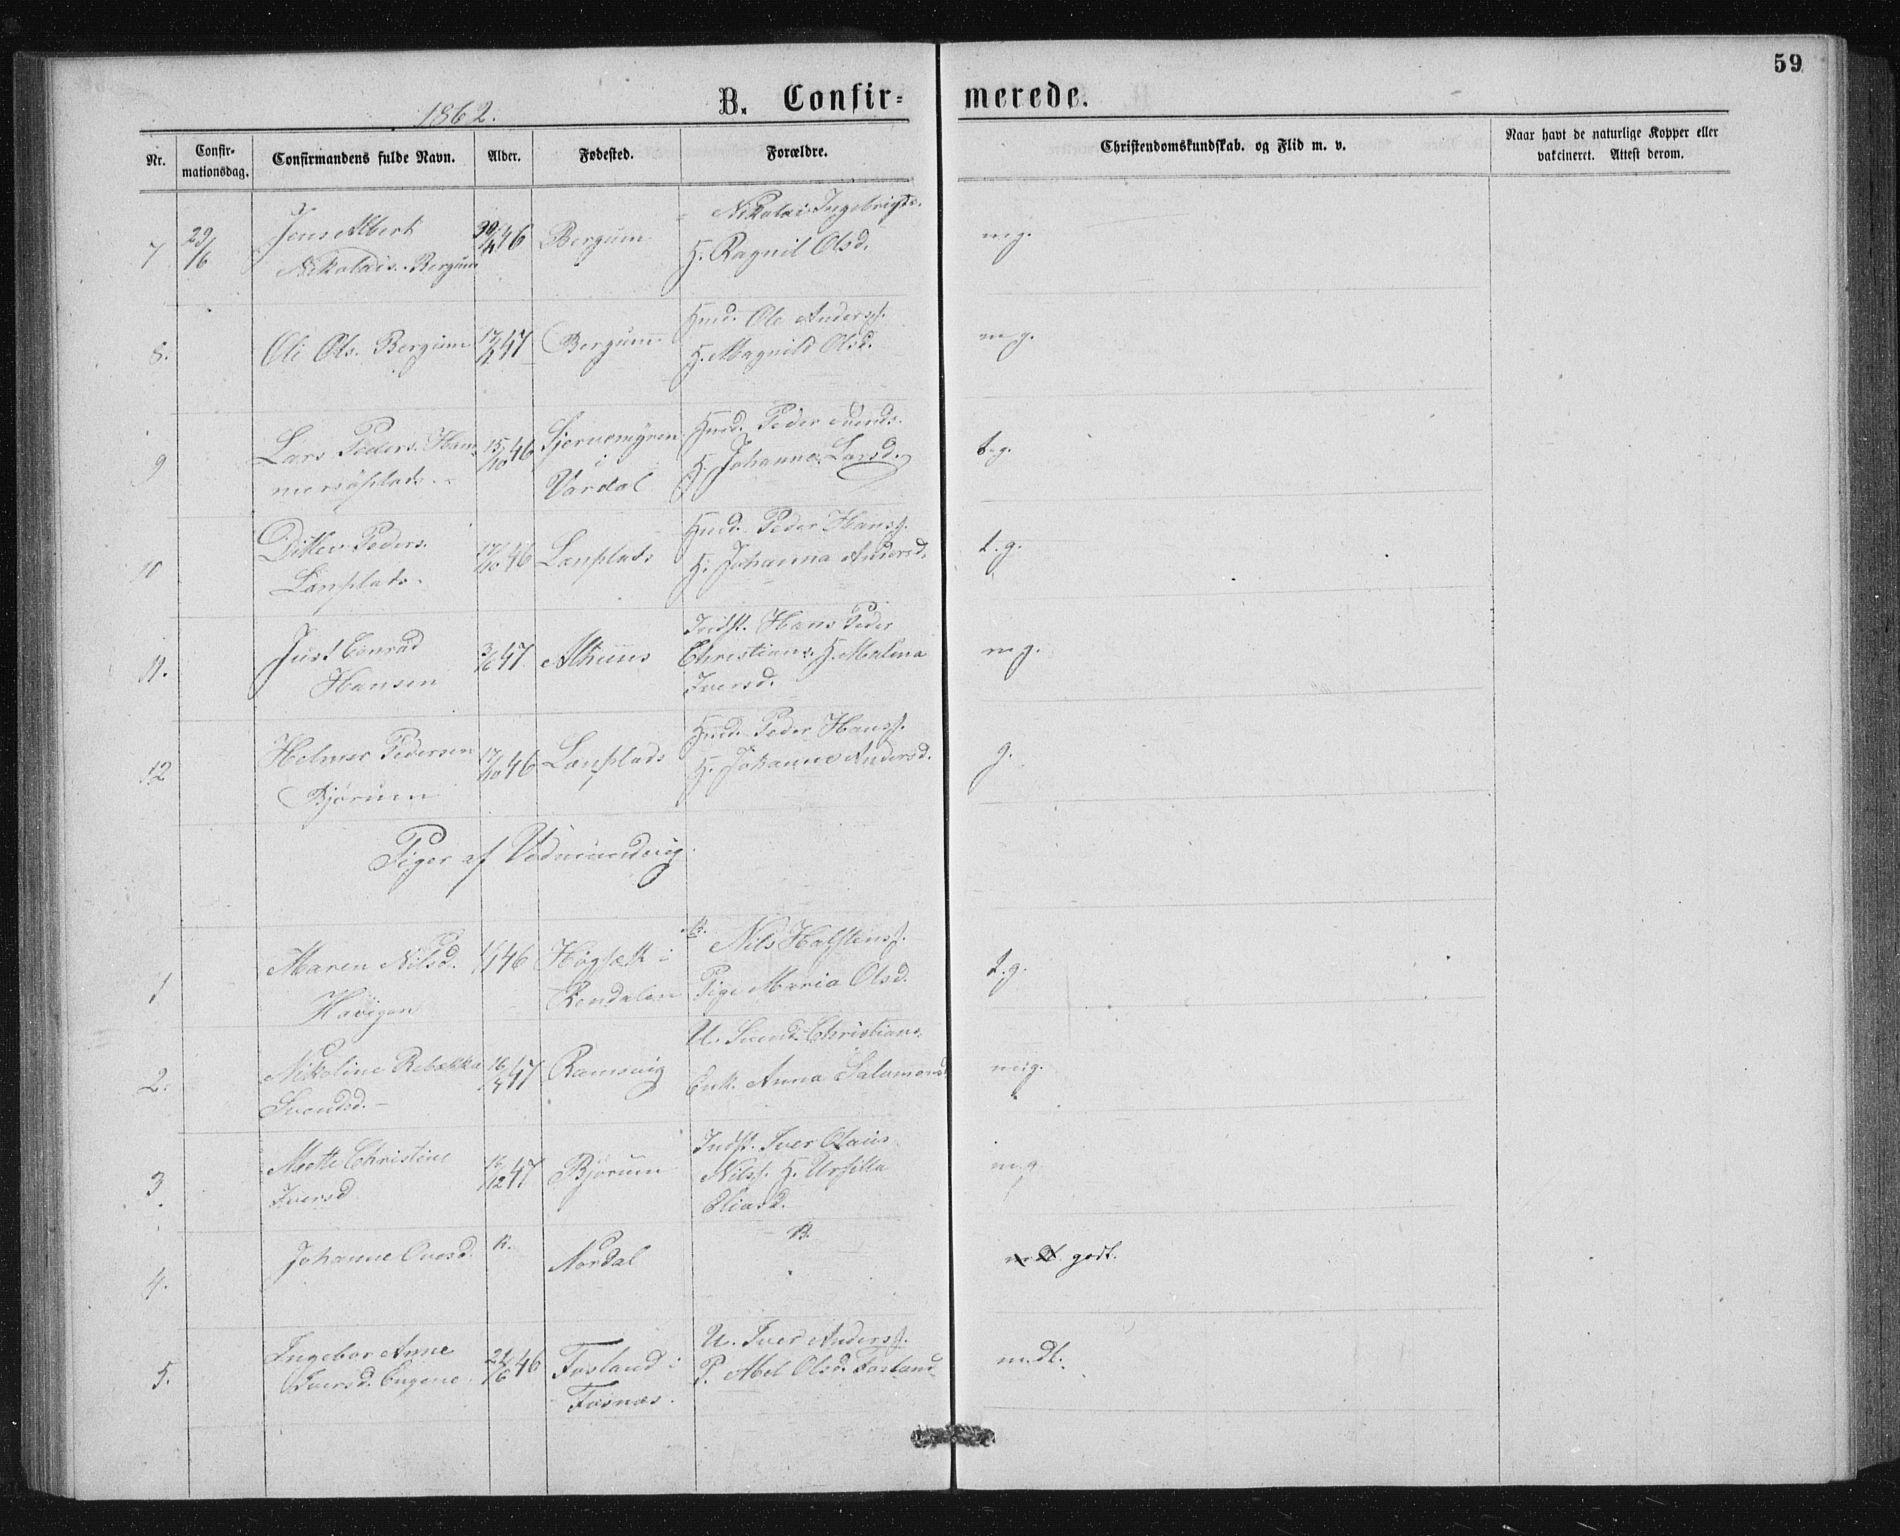 59
1862.
B. Confirmerede.
Nr.
Confirmationsdag.
Confirmandens fulde Navn.
Alder.
Fødested.
Forældre.
Christendomskundskab. og Flid m. v.
Naar havt de naturlige Kopper eller vakcineret. Attest derom.
Jens Albert
Nikolais. Bergum
7
29/6
46
Bergum
Nikolai Ingebrigts.
H. Ragnil Olsd.
m.g.
8.
Ole Ols. Bergum
47
Bergum
Hmd. Ole Anderss.
H. Magnild Olsd.
m.g.
9
Lars Peders. Ham-
15/10 46
i
Vardal
Hmd. Peder
H. Johanna Larsd.
t.g.
10
Ditlev Peders.
Lanplads.
17/10 46
Lanplads
Hmd. Peder Hanss.
H. Johanna Andersd.
t.g.
11.
Just Conrad
Hansen
3/6 47
Indst. Hans Peder
Christians. H. Malena
Iversd.
m.g.
12
Helmer Pedersen
Bjørum
17/10 46
Lanplads
Hmd. Peder Hanss.
H. Johanna Andersd.
g.
Piger af
1
Maren Nilsd.
46
i
Rendalen
Nils Halstens.
Pige Maria Olsd.
t.g.
2.
Nikoline Rebekka
Svendsd.
47
Ramsvig
U. Svend Christians.
Enk. Anna Salamonsd.
m.g.
3.
Mette Christine
Iversd
16/12 47
Bjørum
Indst. Iver Olaus
Nilss. H. Ursilla
Eliasd.
m.g.
4.
Johanne Ovesd.
Nordal
godt.
5.
Ingebor Anne
Iversd. Eugene
46
Fosland i
Fosnæs.
U. Iver Anderss.
P. Abel Olsd. Fosland
m.dl.